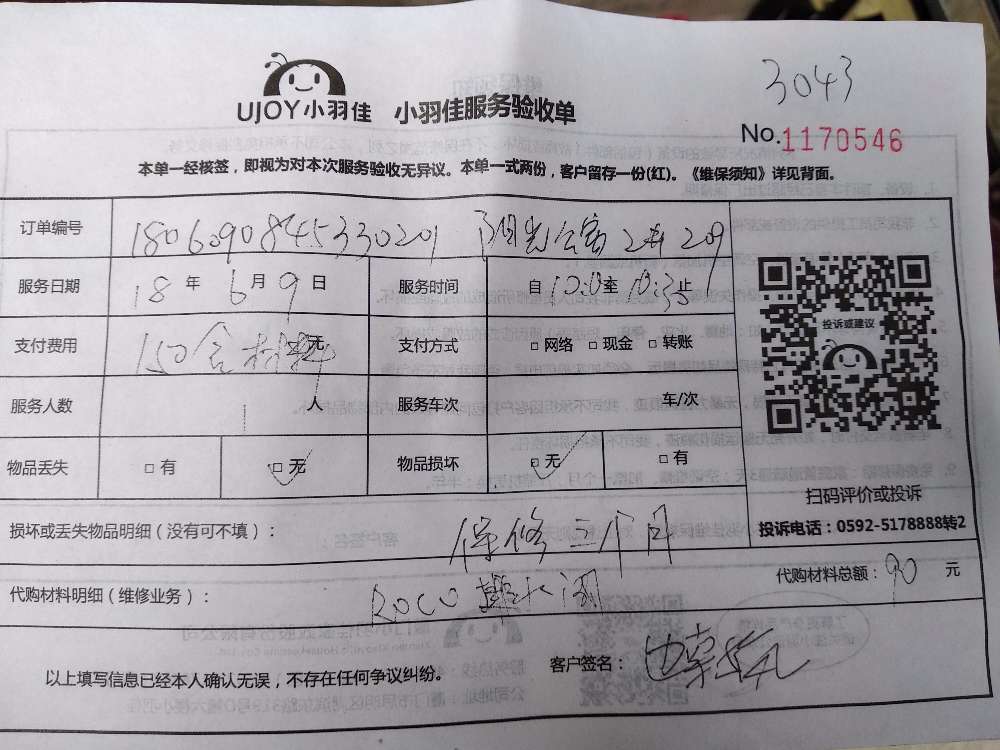 3043
UJOY小羽佳 小羽佳服务验收单
No.1170546
本单一经核签，即视为对本次服务验收无异议。本单一式两份，客户留存一份(红)。《维保须知》详见背面。
订单编号 1806090845330201 阳光公寓 2# 209
服务日期 18 年 6 月 9 日 服务时间 自 10:0 至 10:3 止
支付费用 150含材料 元 支付方式 □ 网络 □ 现金 □ 转账
服务人数 1 人 服务车次 车/次
物品丢失 □ 有 □ 无 物品损坏 □ 无 □ 有
投诉或建议
扫码评价或投诉
投诉电话：0592-5178888转2
损坏或丢失物品明细（没有可不填）： 保修三个月
代购材料明细（维修业务）： ROCO 排水阀 代购材料总额：90 元
以上填写信息已经本人确认无误，不存在任何争议纠纷。 客户签名：